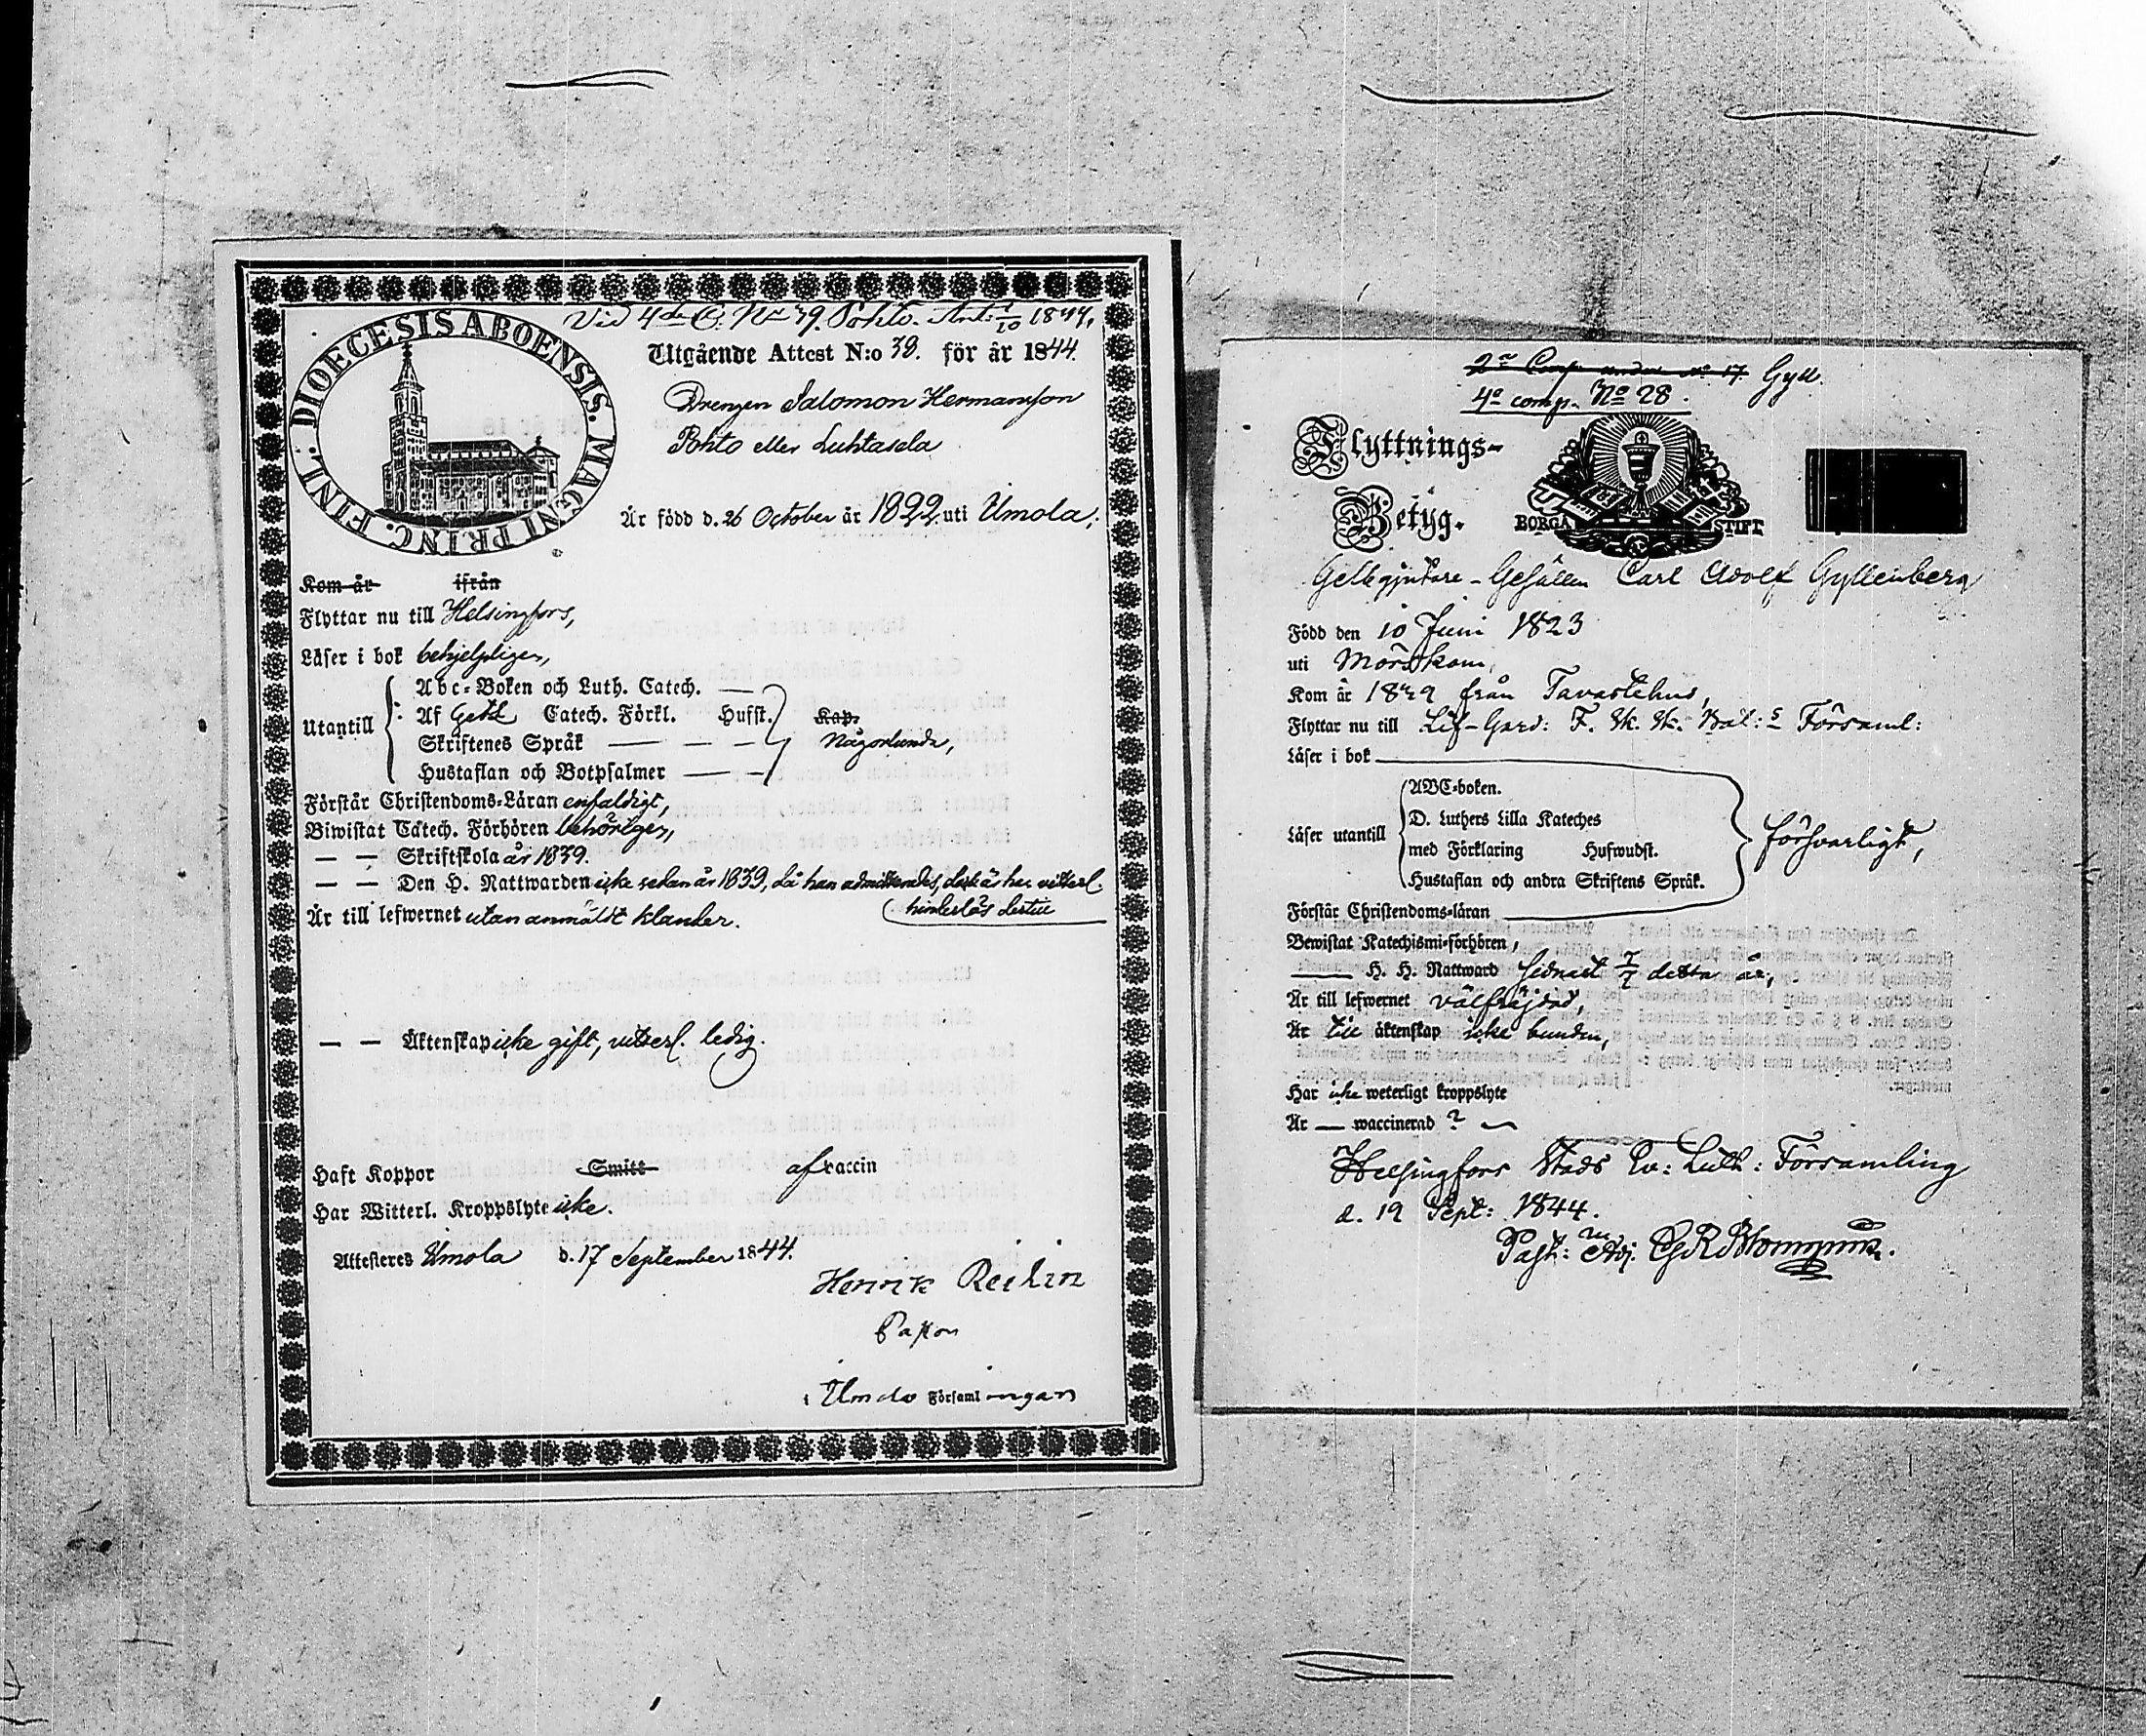 DIOECESIS ABOENSIS. MAGNI PRINC. FINL.
Vid 4de C. No 39. Pohto. Ank: 1844.
Utgående Attest N:o 39. för år 1844.
Drengen Salomon Hermansson
Pohto eller Luhtasela
Är född d. 26 October år 1822, uti Urnola;
Kom år ifrån
Flyttar nu till Helsingfors,
Läser i bok behjelpligen,
Utantill
Abc-Boken och Luth. Catech. —
Af Catech. Förkl. Hufst. Kap.
Skriftenes Språk — — —
Någorlunda,
Hustaflan och Botpsalmer — —
Förstår Christendoms-Läran enfaldigt,
Biwistat Catech. Förhören behörigen,
— — Skriftskola år 1839.
— — Den H. Nattwarden icke sedan år 1839, då han admitterades, dock är han vitterl.
hinderlös dertill
Är till lefwernet utan anmäldt klander.
— — Äktenskap icke gift, vitterl. ledig.
Haft Koppor Smitt af vaccin
Har Witterl. Kroppslyte icke.
Attesteres d. 17 September 1844.
Henrik
Pastor
i Församlingen
2a Comp. under No 17. Gyll.
4e comp. No 28.
Flyttnings-
Betyg.
BORGÅ STIFT
Gelbgjutare-Gesällen Carl Adolf Gyllenberg
Född den 10 Juni 1823
uti Mörskom,
Kom år från Tavastehus,
Flyttar nu till Lif-Gard: F. Sk. Sk. Bat:s Församl:
Läser i bok
Läser utantill
ABC-boken.
D. Luthers Lilla Kateches
med Förklaring Hufwudst.
Hustaflan och andra Skriftens Språk.
försvarligt,
Förstår Christendoms-läran
Bewistat Katechismi-förhören,
— H. H. Nattward sednast 7/7 detta år,
Är till lefwernet välfräjdad,
Är till äktenskap icke bunden,
Har icke weterligt kroppslyte
Är — waccinerad ? —
Helsingfors Stads Ev: Luth: Församling
d. 19 Sept: 1844.
Past: Adj.